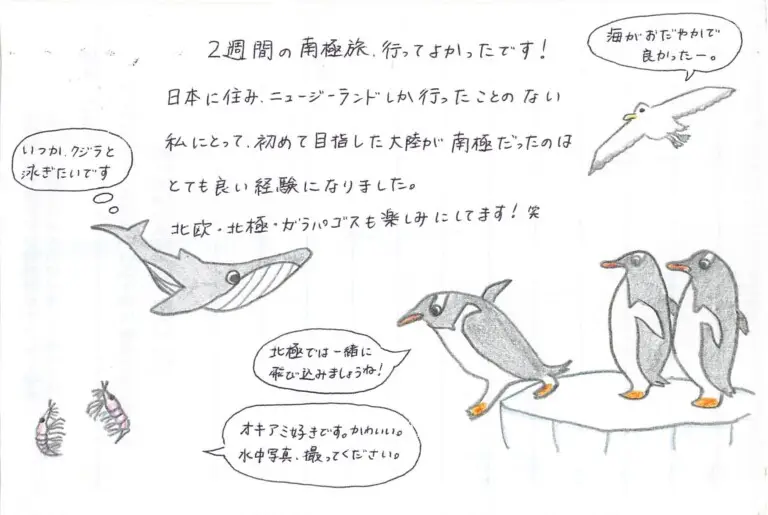 2週間の南極旅、行ってよかったです!
海がおだやかで
良かったー。
日本に住み、ニュージーランドしか行ったことのない
私にとって、初めて目指した大陸が南極だったのは
とても良い経験になりました。
北欧・北極・ガラパゴスも楽しみにしてます!笑
いつか、クジラと
泳ぎたいです
北極では一緒に
飛び込みましょうね!
オキアミ好きです。かわいい。
水中写真、撮ってください。